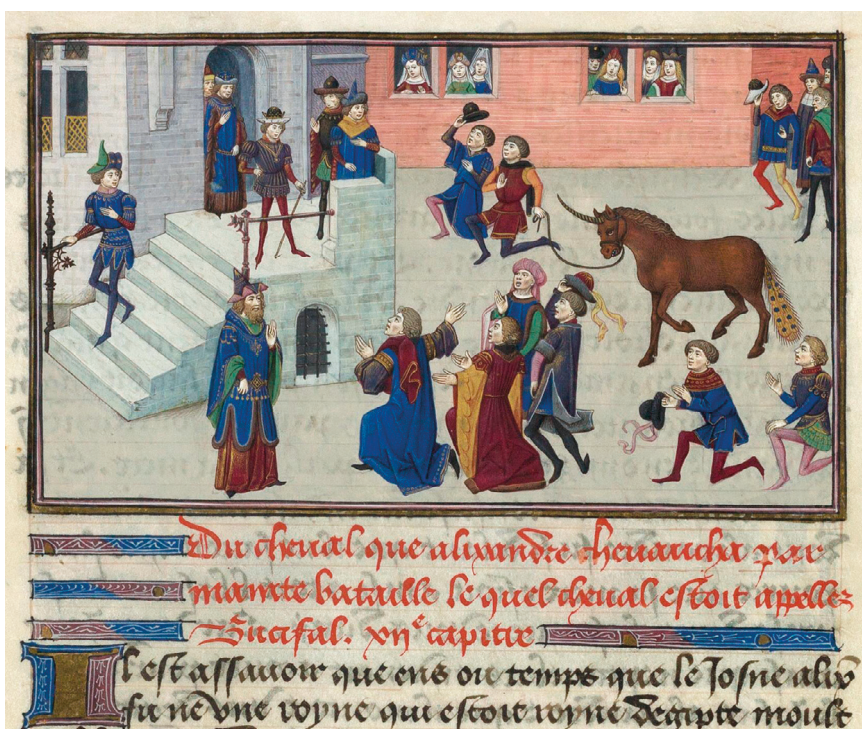 Du cheual que alixandre cheuaucha par
mainte bataille le quel cheual estoit appellez
Bucifal. xij e capitre
Il est assauoir que ens ou temps que le Josne alix
fu ne vne royne qui estoit royne degipte moult